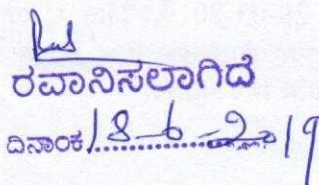 ರವಾನಿಸಲಾಗಿದೆ
ದಿನಾಂಕ 18-6-2019